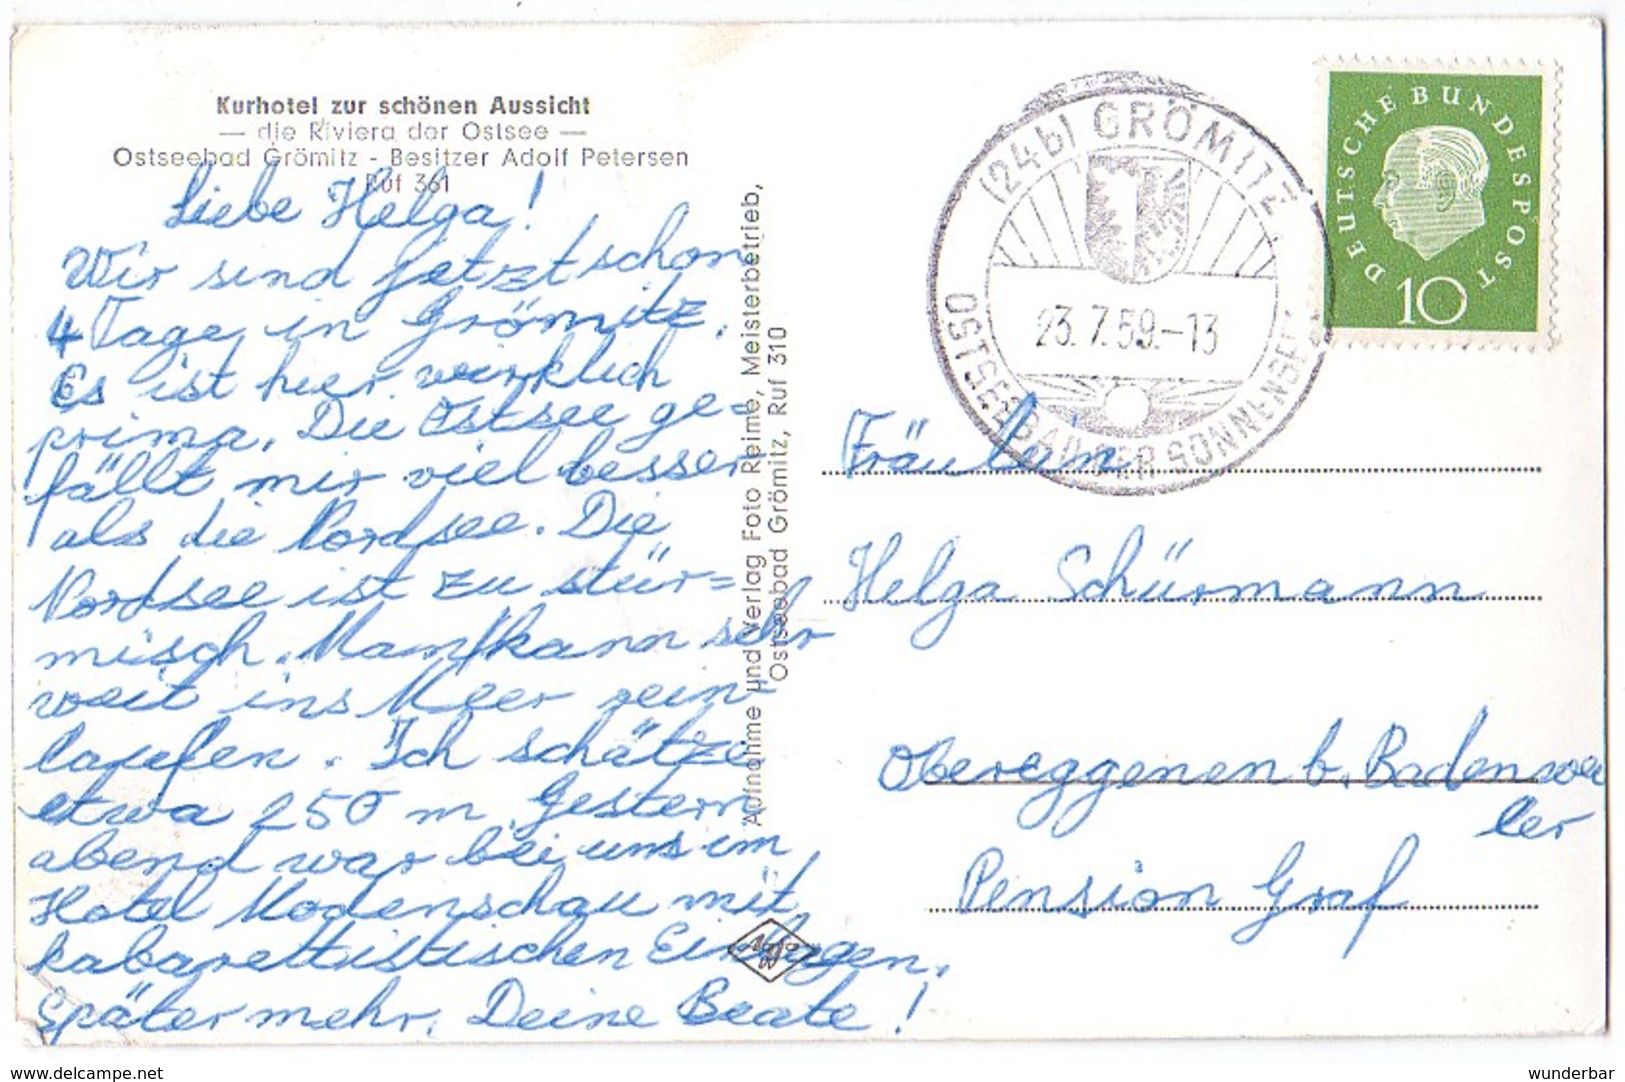 Kurhotel zur schönen Aussicht
— die Riviera der Ostsee —
Ostseebad Grömitz - Besitzer Adolf Petersen
Ruf 361
Liebe Helga!
Wir sind jetzt schon
4 Tage in Grömitz.
Es ist hier wirklich
prima. Die Ostsee ge=
fällt mir viel besser
als die Nordsee. Die
Nordsee ist zu stür=
misch. Man kann sehr
weit ins Meer rein-
laufen. Ich schätze
etwa 250 m. Gestern
abend war bei uns im
Hotel Modenschau mit
kabarettistischen Einlagen.
Später mehr. Deine Beate!
Aufnahme und Verlag Foto Reime, Meisterbetrieb,
Ostseebad Grömitz, Ruf 310
Agfa
(24b) GRÖMITZ
23.7.59.-13
OSTSEEBAD DER SONNENSEITE
DEUTSCHE BUNDESPOST
10
Fräulein
Helga Schürmann
Obereggenen b. Badenwei
ler
Pension Graf
delcampe.net
wunderbar